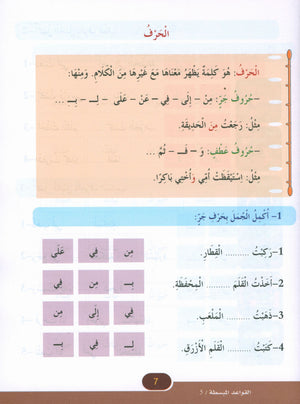 الْحَرْفُ
الْحَرْفُ: هُوَ كَلِمَةٌ يَظْهَرُ مَعْنَاهَا مَعَ غَيْرِهَا مِنَ الْكَلَامِ. وَمِنْهَا:
-حُرُوفُ جَرٍّ: مِنْ - إِلَى - فِي - عَنْ - عَلَى - لِـ - بِـ ...
مِثْلُ: رَجَعْتُ مِنَ الْحَدِيقَةِ.
-حُرُوفُ عَطْفٍ: وَ - فَـ - ثُمَّ ...
مِثْلُ: اِسْتَيْقَظَتْ أُمِّي وَأُخْتِي بَاكِرًا.
1- أُكْمِلُ الْجُمَلَ بِحَرْفِ جَرٍّ:
1-رَكِبْتُ ......... الْقِطَارِ. مِن فِي عَلَى
2-أَخَذْتُ الْقَلَمَ ......... الْمِحْفَظَةِ. بِـ مِن فِي
3-ذَهَبْتُ ......... الْمَلْعَبِ. فِي إِلَى مِن
4-كَتَبْتُ ......... الْقَلَمِ الْأَزْرَقِ. لِـ فِي بِـ
7
القواعد المبسطة / 5